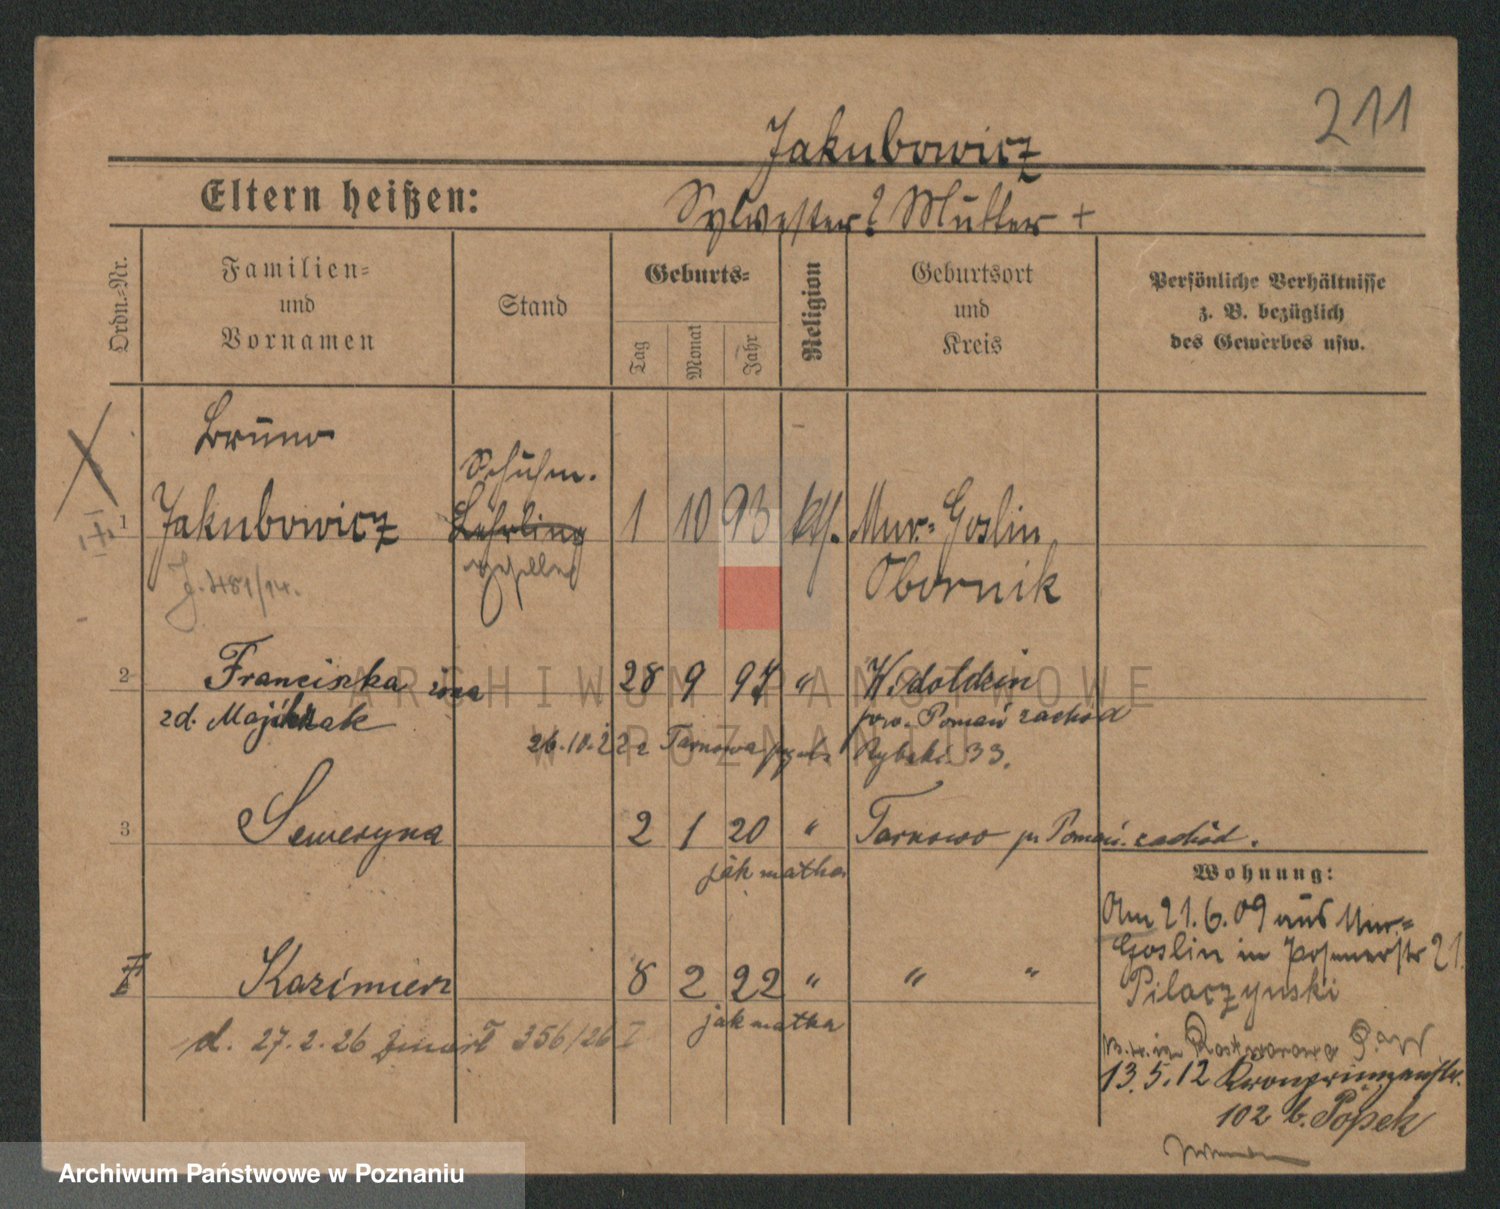 211
Jakubowicz
Eltern heißen:
Sylvester ? Mutter +
Ordn.-Nr.
Familien-
und
Vornamen
Stand
Geburts-
Tag
Monat
Jahr
Religion
Geburtsort
und
Kreis
Persönliche Verhältnisse
z. B. bezüglich
des Gewerbes usw.
Bruno
Schuhm.
1 Jakubowicz Lehrling 1 10 93 kth. Mur.-Goslin
Obornik
2 Franciszka żona 28 9 97 "
zd. Majchrzak
pow. Poznań zachód
26.10.22 z Tarnowa
33.
3 Seweryna 2 1 20 " Tarnowo p. Poznań. zachód.
jak matka
Wohnung:
Am 21.6.09 aus Mur.-
Goslin in Posenerstr 21.
Pilaczynski
Kazimierz 8 2 22 " " "
jak matka
d. 27.2.26 zmarł 356/26 I
13.5.12 Kronprinzenstr.
102 b. Popek
ARCHIWUM PAŃSTWOWE
W POZNANIU
Archiwum Państwowe w Poznaniu